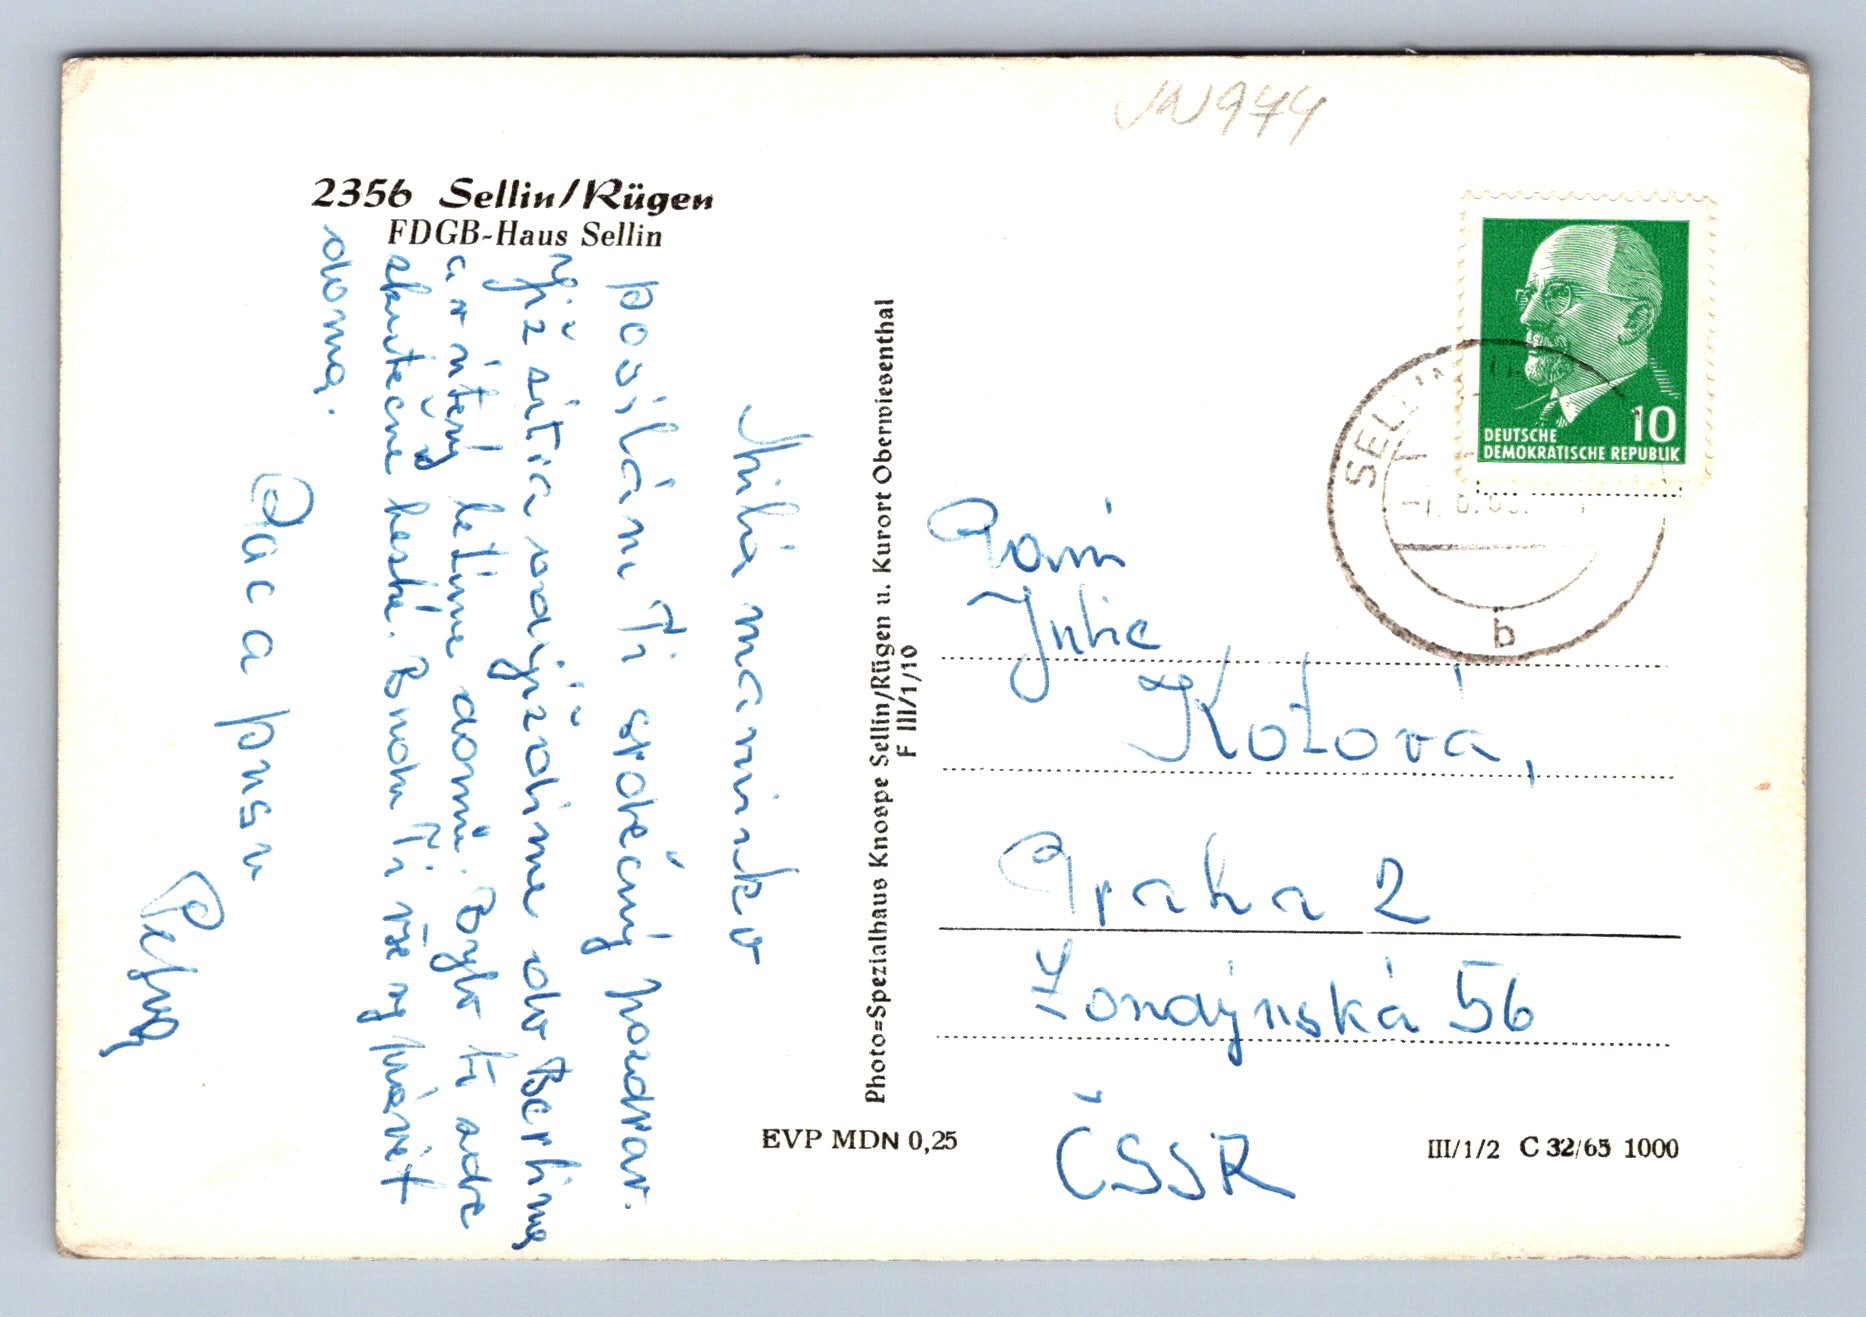 2356 Sellin/Rügen
FDGB-Haus Sellin
Milá maminko
posílám Ti srdečný pozdrav.
již zítra odjíždíme do Berlína
a v úterý letíme domů. Bylo to zde
skutečně hezké. Budu Ti vše vyprávět
doma.
Pac a pusu
Petra
Photo=Spezialhaus Knospe Sellin/Rügen u. Kurort Oberwiesenthal
F III/1/10
EVP MDN 0,25
DEUTSCHE
DEMOKRATISCHE REPUBLIK
10
SELLIN
b
Paní
Julie
Kotová,
Praha 2
Londýnská 56
ČSSR
III/1/2 C 32/65 1000